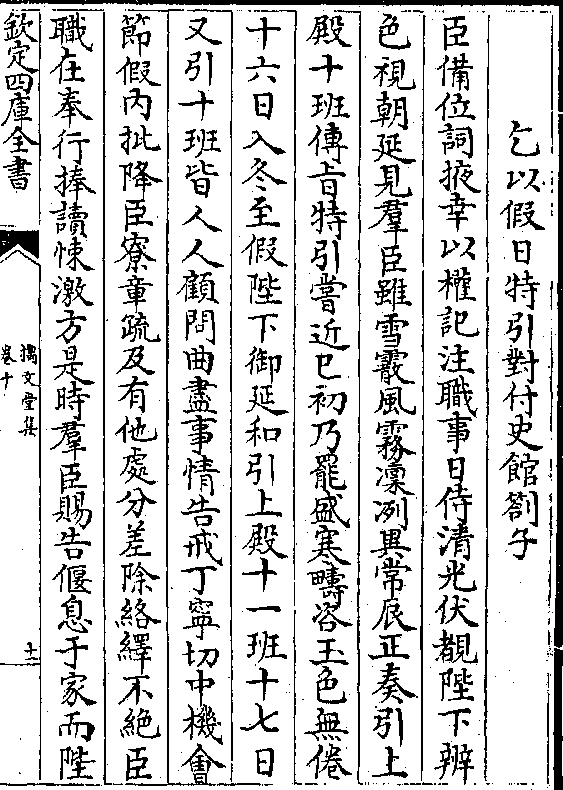 乞以假日特引對付史館劄子
臣備位詞掖幸以權記注職事日侍清光伏覩陛下辨
色視朝延見羣臣雖雪霰風霧凜冽異常辰正奏引上
殿十班傳旨特引嘗近巳初乃罷盛寒疇咨玉色無倦
十六日入冬至假陛下御延和引上殿十一班十七日
又引十班皆人人顧問曲盡事情告戒丁寧切中機會
節假内批降臣寮章疏及有他處分差除絡繹不絶臣
職在奉行捧讀悚激方是時羣臣賜告偃息于家而陛
欽定四庫全書
摛文堂集
卷十
十二